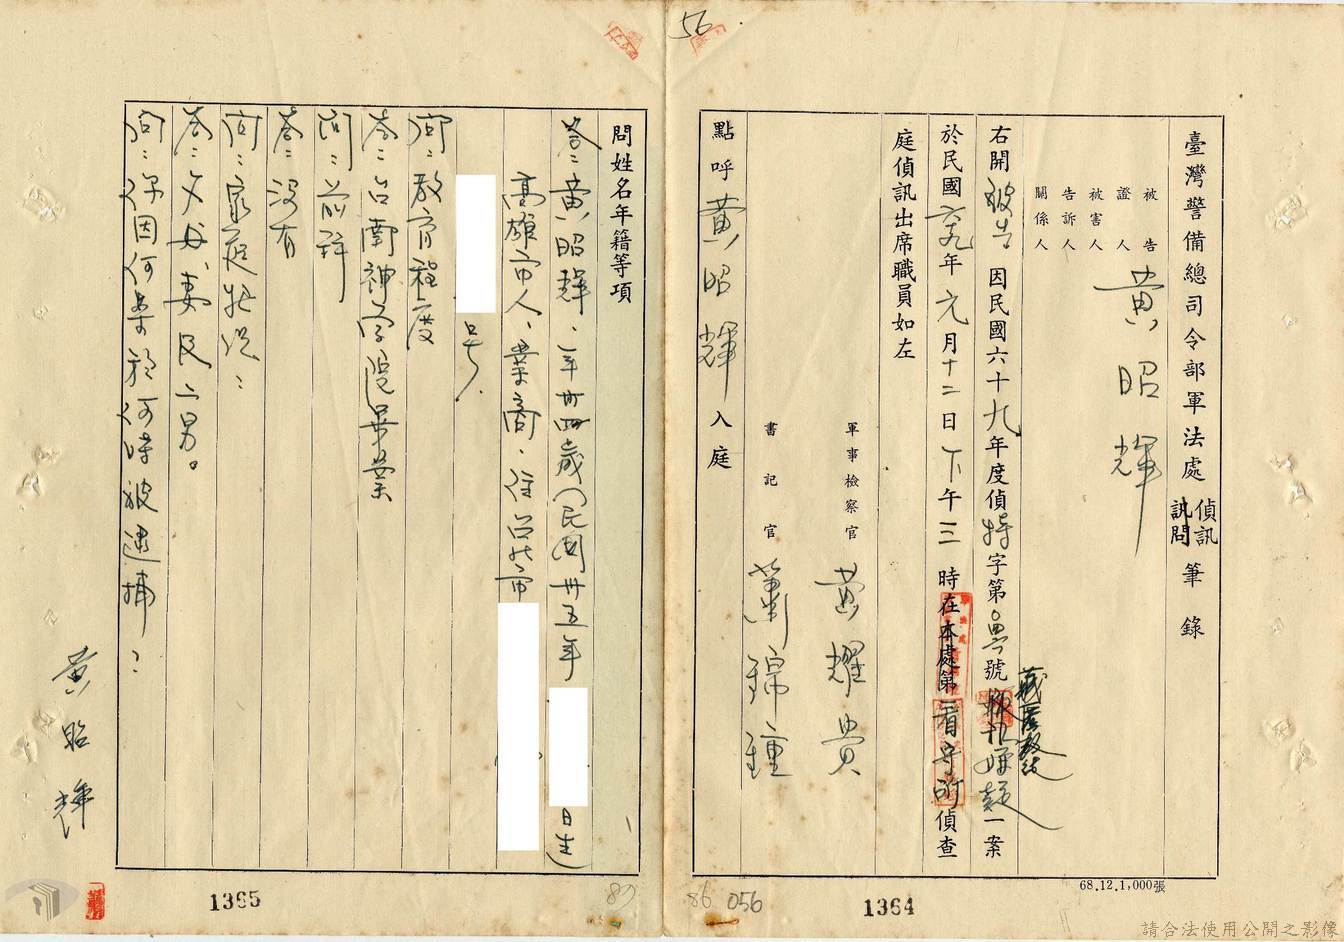 56
臺灣警備總司令部軍法處偵訊訊問筆錄
被告
證人
被害人
告訴人
關係人
黃昭輝
右開被告因民國六十九年度偵特字第 號 一案
於民國六九年元月十二日下午三時在本處第一看守所偵查
庭偵訊出席職員如左
軍事檢察官 黃耀貴
書記官 蕭錦鍾
點呼黃昭輝入庭
68.12.1,000張
86 056
1364
問姓名年籍等項
答:黃昭輝、年卅四歲(民國卅五年 日生
高雄市人、業商、住台北市
號.
問:教育程度
答:台南神學院畢業
問:前科
答:沒有
問:家庭狀況:
答:父母妻及二男。
問:你因何案於何時被逮捕:
黃昭輝
87
1365
請合法使用公開之影像